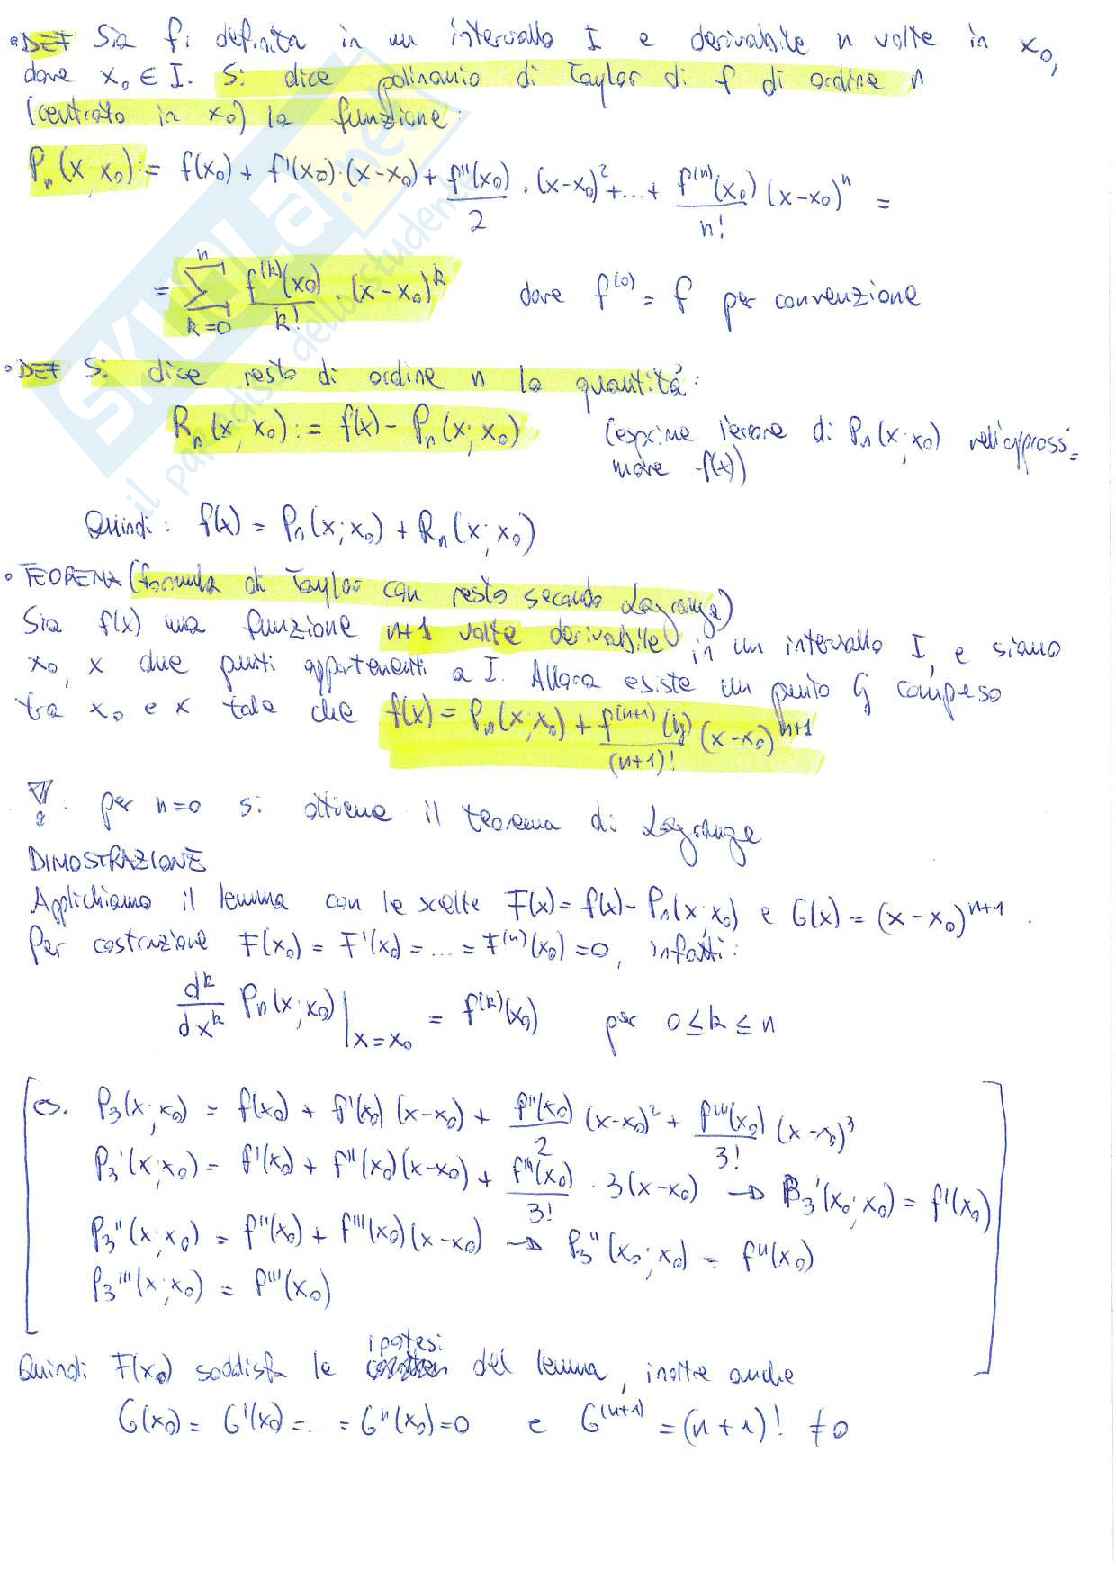 • DEF Sia f: definita in un intervallo I e derivabile n volte in x₀,
dove x₀ ∈ I. Si dice polinomio di Taylor di f di ordine n
(centrato in x₀) la funzione:
Pₙ(x, x₀) := f(x₀) + f'(x₀)·(x-x₀) + f''(x₀)/2 · (x-x₀)² + ... + f⁽ⁿ⁾(x₀)/n! (x-x₀)ⁿ =
= ∑_{k=0}^{n} f⁽ᵏ⁾(x₀)/k! · (x-x₀)ᵏ dove f⁽⁰⁾ = f per convenzione
• DEF Si dice resto di ordine n la quantitá:
Rₙ(x, x₀) := f(x) - Pₙ(x; x₀) (esprime l'errore di Pₙ(x; x₀) nell'approssi=
mare f(x))
Quindi: f(x) = Pₙ(x; x₀) + Rₙ(x; x₀)
• TEOREMA (formula di Taylor con resto secondo Lagrange)
Sia f(x) una funzione n+1 volte derivabile in un intervallo I, e siano
x₀, x due punti appartenenti a I. Allora esiste un punto ξ compreso
tra x₀ e x tale che f(x) = Pₙ(x; x₀) + f⁽ⁿ⁺¹⁾(ξ)/(n+1)! (x-x₀)ⁿ⁺¹
per n=0 si ottiene il teorema di Lagrange
DIMOSTRAZIONE
Applichiamo il lemma con le scelte F(x) = f(x) - Pₙ(x; x₀) e G(x) = (x-x₀)ⁿ⁺¹.
Per costruzione F(x₀) = F'(x₀) = ... = F⁽ⁿ⁾(x₀) = 0, infatti:
dᵏ/dxᵏ Pₙ(x; x₀) |_{x=x₀} = f⁽ᵏ⁾(x₀) per 0 ≤ k ≤ n
es. P₃(x; x₀) = f(x₀) + f'(x₀) (x-x₀) + f''(x₀)/2 (x-x₀)² + f'''(x₀)/3! (x-x₀)³
P₃'(x; x₀) = f'(x₀) + f''(x₀)(x-x₀) + f'''(x₀)/3! · 3(x-x₀) → P₃'(x₀; x₀) = f'(x₀)
P₃''(x; x₀) = f''(x₀) + f'''(x₀)(x-x₀) → P₃''(x₀; x₀) = f''(x₀)
P₃'''(x; x₀) = f'''(x₀)
Quindi F(x₀) soddisfa le ipotesi del lemma, inoltre anche
G(x₀) = G'(x₀) = ... = Gⁿ(x₀) = 0 e G⁽ⁿ⁺¹⁾ = (n+1)! ≠ 0
SKUOLA.net
il paradiso dello studente